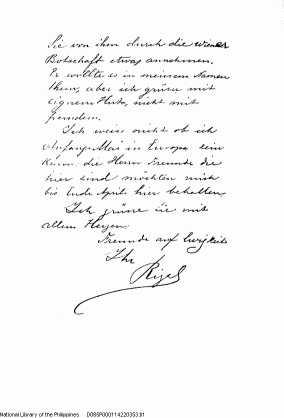 Sie von ihm durch die wiener
Botschaft etwas annehmen.
Er wollte es in meinem Namen
thun, aber ich grüsse mit
eignem Hute, nicht mit
fremdem.
Ich weiss nicht ob ich
Anfang Mai in Europa sein
kann. die Herrn Freunde die
hier sind möchten mich
bis Ende April hier behalten
Ich grüsse Sie mit
allem Herzen
Freunde auf Ewigkeit
Ihr
Rizal
National Library of the Philippines